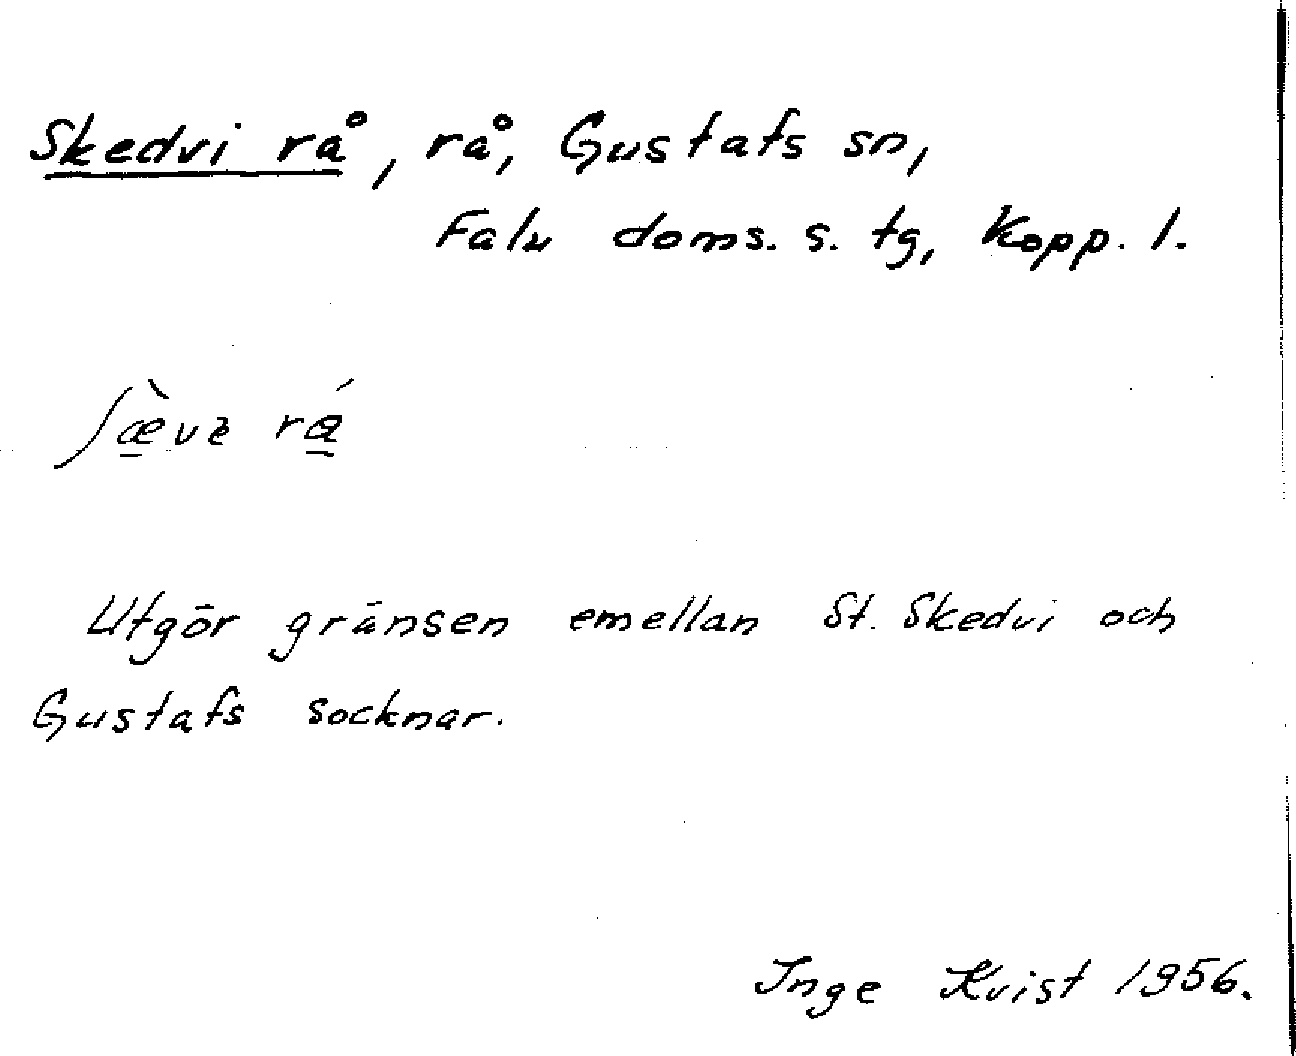 Skedvi rå, rå, Gustafs sn,
Falu doms. s. tg, Kopp. l.
ʃæ̀vɛ rá
Utgör gränsen emellan St. Skedvi och
Gustafs socknar.
Inge Kvist 1956.